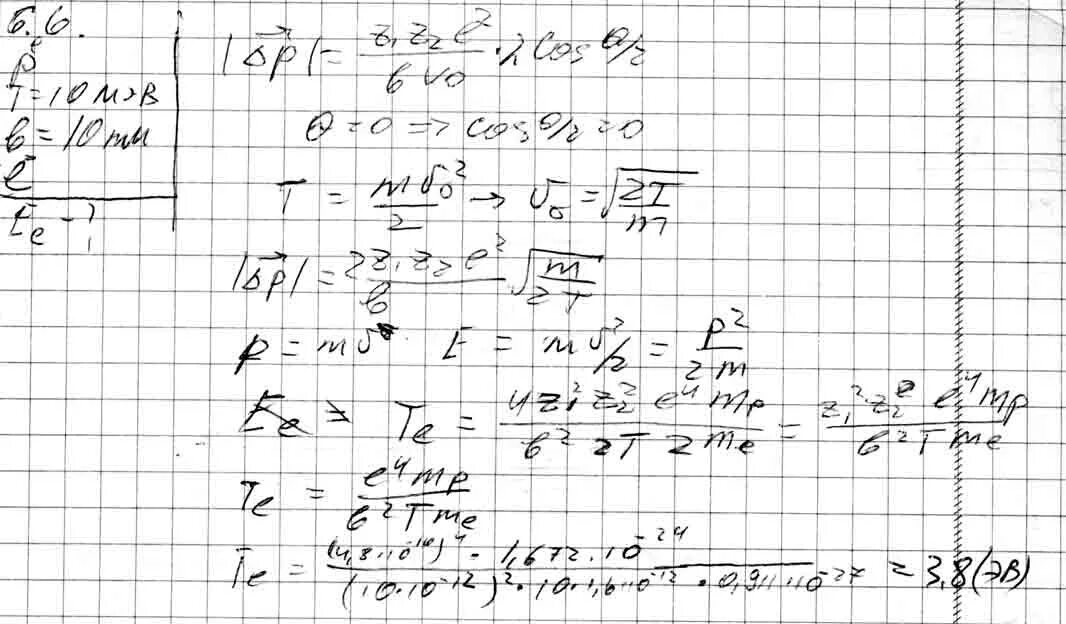 5.6.
p
T=10 МэВ
b=10 пм
e
Ee-?
|Δp⃗|= z₁z₂e²/bv₀ · 2cos θ/2
θ=0 => cos θ/2=0
T = mv₀²/2 → v₀=√(2T/m)
|Δp⃗|=2z₁z₂e²/b √(m/2T)
p = mv. E = mv²/2 = p²/2m
Te = 4z₁²z₂²e⁴mp/b² 2T 2me = z₁²z₂²e⁴mp/b²Tme
Te = e⁴mp/b²Tme
Te = (4,8·10⁻¹⁰)⁴ · 1,672·10⁻²⁴/(10·10⁻¹²)²·10·1,6·10⁻¹²·0,911·10⁻²⁷ = 3,8(эВ)